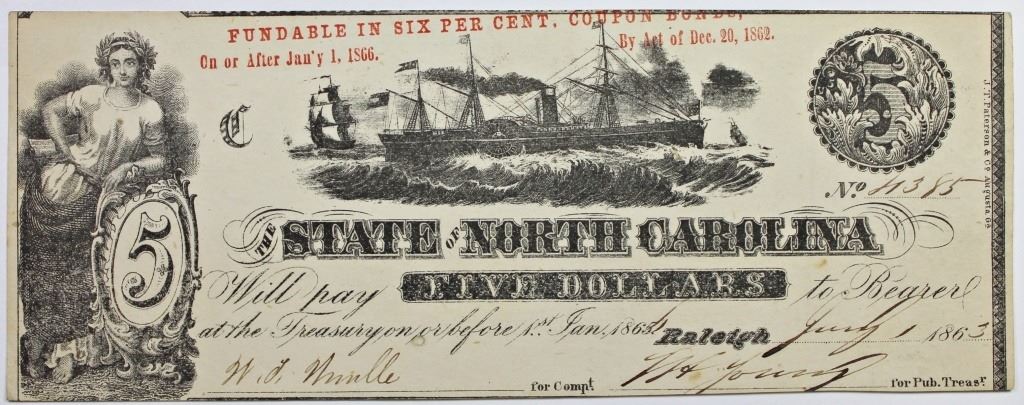 FUNDABLE IN SIX PER CENT. COUPON BONDS,
On or After Jan'y 1, 1866.
By Act of Dec. 20, 1862.
C
5
J. T. Paterson & Co Augusta Ga
No 11385
THE STATE OF NORTH CAROLINA
5
Will pay FIVE DOLLARS to Bearer
at the Treasury on or before 1st Jan, 186
Raleigh 1 1863
for Compt
for Pub. Treasr